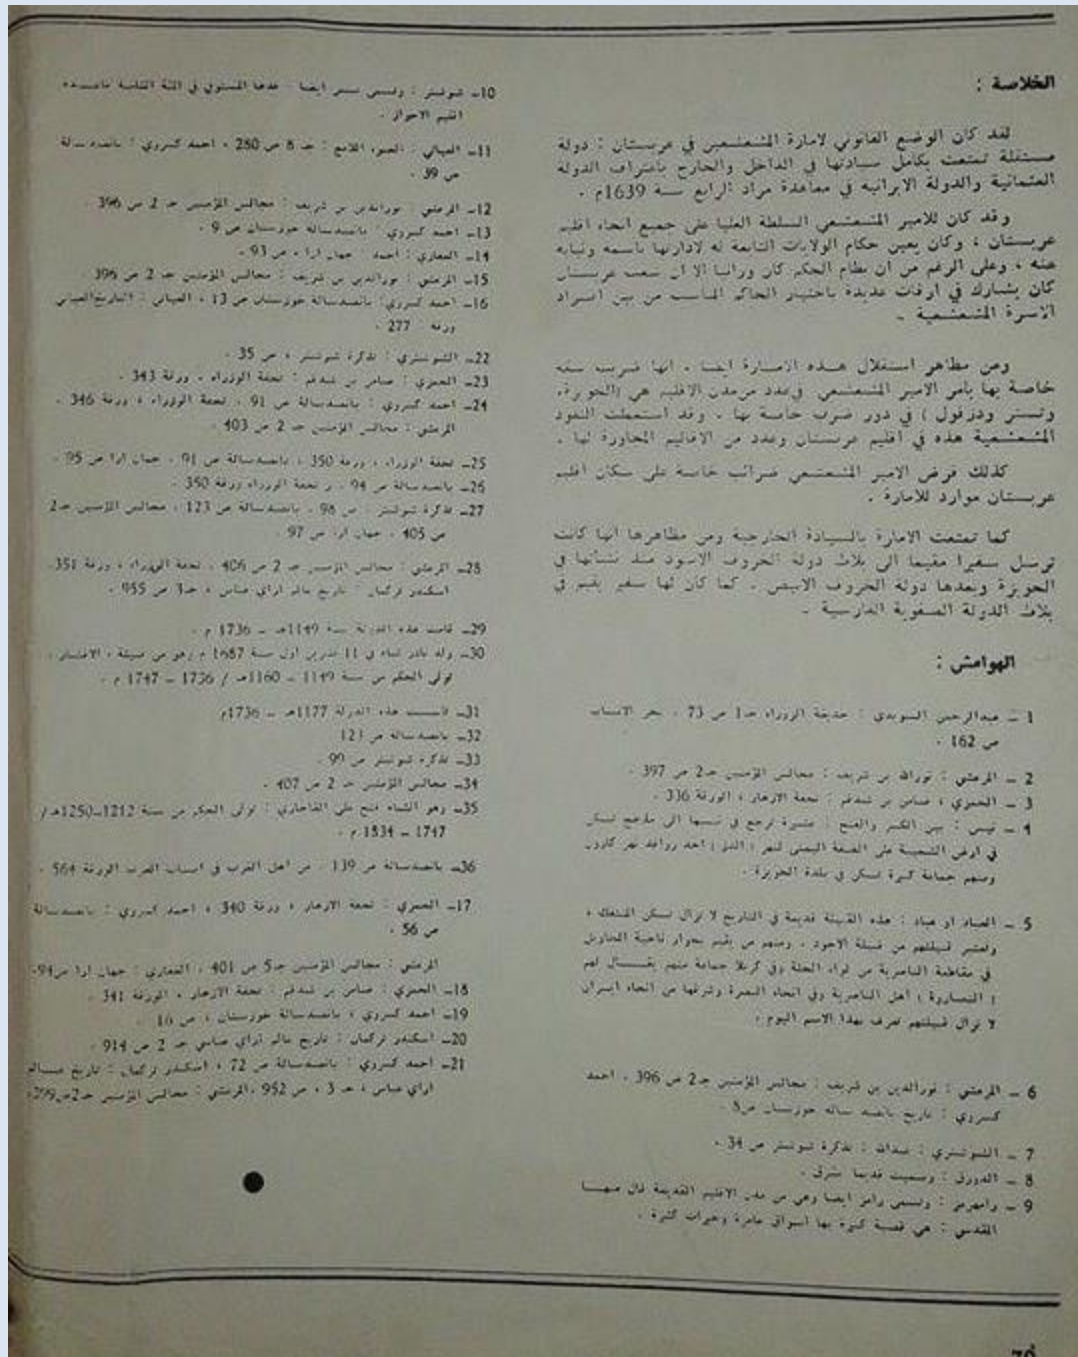 الخلاصة :
لقد كان الوضع القانوني لامارة المشعشعين في عربستان : دولة
مستقلة تمتعت بكامل سيادتها في الداخل والخارج باعتراف الدولة
العثمانية والدولة الايرانية في معاهدة مراد الرابع سنة 1639م .
وقد كان للامير المشعشعي السلطة العليا على جميع انحاء اقليم
عربستان ، وكان يعين حكام الولايات التابعة له لادارتها باسمه ونيابه
عنه ، وعلى الرغم من أن نظام الحكم كان وراثيا الا ان شعب عربستان
كان يشارك في اوقات عديدة باختيار الحاكم المناسب من بين افراد
الاسرة المشعشعية ـ
ومن مظاهر استقلال هذه الامارة ايضا ، انها ضربت سكه
خاصة بها بأمر الامير المشعشعي في عدد من مدن الاقليم هي (الحويزة،
وتستر ودزفول ) في دور ضرب خاصة بها . وقد استعملت النقود
المشعشعية هذه في اقليم عربستان وعدد من الاقاليم المجاورة لها .
كذلك فرض الامير المشعشعي ضرائب خاصة على سكان اقليم
عربستان موارد للامارة .
كما تمتعت الامارة بالسيادة الخارجية ومن مظاهرها أنها كانت
ترسل سفيرا مقيما الى بلاط دولة الخروف الاسود منذ نشأتها في
الحويزة وبعدها دولة الخروف الابيض . كما كان لها سفير يقيم في
بلاط الدولة الصفوية الفارسية ـ
الهوامش :
1 ـ عبدالرحمن السويدي : حديقة الوزراء جـ1 ص 73 ، بحر الانساب
ص 162 .
2 ـ المرعشي : نورالله بن شريف : مجالس المؤمنين جـ2 ص 397 .
3 ـ الحمزي ، ضامن بن شدقم : تحفة الازهار ، الورقة 336 .
4 ـ نيس : بين الكسر والفتح : عشيرة ترجع في نسبها الى مذحج تسكن
في ارض الشعيبة على الضفة اليمنى لنهر ( الدز ) احد روافد نهر كارون
ومنهم جماعة كبيرة تسكن في بلدة الحويزة .
5 ـ العباد او عباد : هذه القبيلة قديمة في التاريخ لا تزال تسكن المنتفك ،
وتعتبر قبيلتهم من قبيلة الاجود . ومنهم من يقيم بجوار ناحية
في مقاطعة الناصرية من لواء الحلة وفي كربلا جماعة منهم يقــال لهم
( النصاروة ) أهل الناصرية وفي انحاء البصرة وشرقها من انحاء ايــران
لا تزال قبيلتهم تعرف بهذا الاسم اليوم .
6 ـ المرعشي : نورالدين بن شريف : مجالس المؤمنين جـ2 ص 396 ، احمد
كسروي : تاريخ بانصد ساله خوزستان ص8 .
7 ـ الشوشتري : عبدالله : تذكرة شوشتر ص 34 .
8 ـ الدورق : وسميت قديما بشرق .
9 ـ رامهرمز : وتسمى رامز ايضا وهي من مدن الاقليم القديمة قال عنهــا
المقدسي : هي قصبة كبيرة بها أسواق عامرة وخيرات كثيرة .
10ـ شوشتر : وتسمى تستر ايضا عدها المستوفي في المئة الثامنة قاعــدة
اقليم الاحواز .
11ـ الغياثي : الضوء اللامع : جـ 8 ص 280 ، احمد كسروي : بانصد ســالة
ص 39 .
12ـ المرعشي : نورالدين بن شريف : مجالس المؤمنين جـ 2 ص 396 .
13ـ احمد كسروي : بانصدسالة خوزستان ص 9 .
14ـ الغفاري : احمد : جهان ارا ، ص 93 .
15ـ المرعشي : نورالدين بن شريف : مجالس المؤمنين جـ 2 ص 396 .
16ـ احمد كسروي : بانصدسالة خوزستان ص 13 ، الغياثي : التاريخ الغياثي
ورقة 277 .
22ـ الشوشتري : تذكرة شوشتر ، ص 35 .
23ـ الحمزي : ضامن بن شدقم : تحفة الوزراء . ورقة 343 .
24ـ احمد كسروي : بانصدسالة ص 91 ، تحفة الوزراء ، ورقة 346 .
المرعشي : مجالس المؤمنين جـ 2 ص 403 .
25ـ تحفة الوزراء ، ورقة 350 ، بانصدسالة ص 91 . جهان ارا ص 95 .
26ـ بانصدسالة ص 94 . و تحفة الوزراء ورقة 350 .
27ـ تذكرة شوشتر : ص 98 . بانصدسالة ص 123 ، مجالس المؤمنين جـ2
ص 405 ، جهان ارا ص 97 .
28ـ المرعشي : مجالس المؤمنين جـ 2 ص 406 . تحفة الوزراء ، ورقة 351.
اسكندر تركمان : تاريخ عالم اراي عباسي ، جـ3 ص 955 .
29ـ قامت هذه الدولة سنة 1149هـ ـ 1736 م .
30ـ ولد نادر شاه في 11 تشرين اول سنة 1687 م وهو من قبيلة ، الافشار ،
تولى الحكم من سنة 1149 ـ 1160هـ / 1736 ـ 1747 م .
31ـ تأسست هذه الدولة 1177هـ ـ 1736م
32ـ بانصدسالة ص 121
33ـ تذكرة شوشتر ص 99 .
34ـ مجالس المؤمنين جـ 2 ص 407 .
35ـ وهو الشاه فتح علي القاجاري : تولى الحكم من سنة 1212ـ1250هـ/
1747 ـ 1834 م .
36ـ بانصدسالة ص 139 . من اهل العرب في انساب العرب الورقة 564 .
17ـ الحمزي : تحفة الازهار ، ورقة 340 ، احمد كسروي : بانصــدسالة
ص 56 .
المرعشي : مجالس المؤمنين جـ5 ص 401 ، الغفاري : جهان ارا ص94.
18ـ الحمزي : ضامن بن شدقم : تحفة الازهار ، الورقة 341 .
19ـ احمد كسروي ، بانصدسالة خوزستان ، ص 16 .
20ـ اسكندر تركمان : تاريخ عالم اراي عباسي جـ 2 ص 914 .
21ـ احمد كسروي : بانصدسالة ص 72 ، اسكندر تركمان : تاريخ عــالم
اراي عباس ، جـ 3 ، ص 952 ،المرعشي : مجالس المؤمنين جـ2ص399.